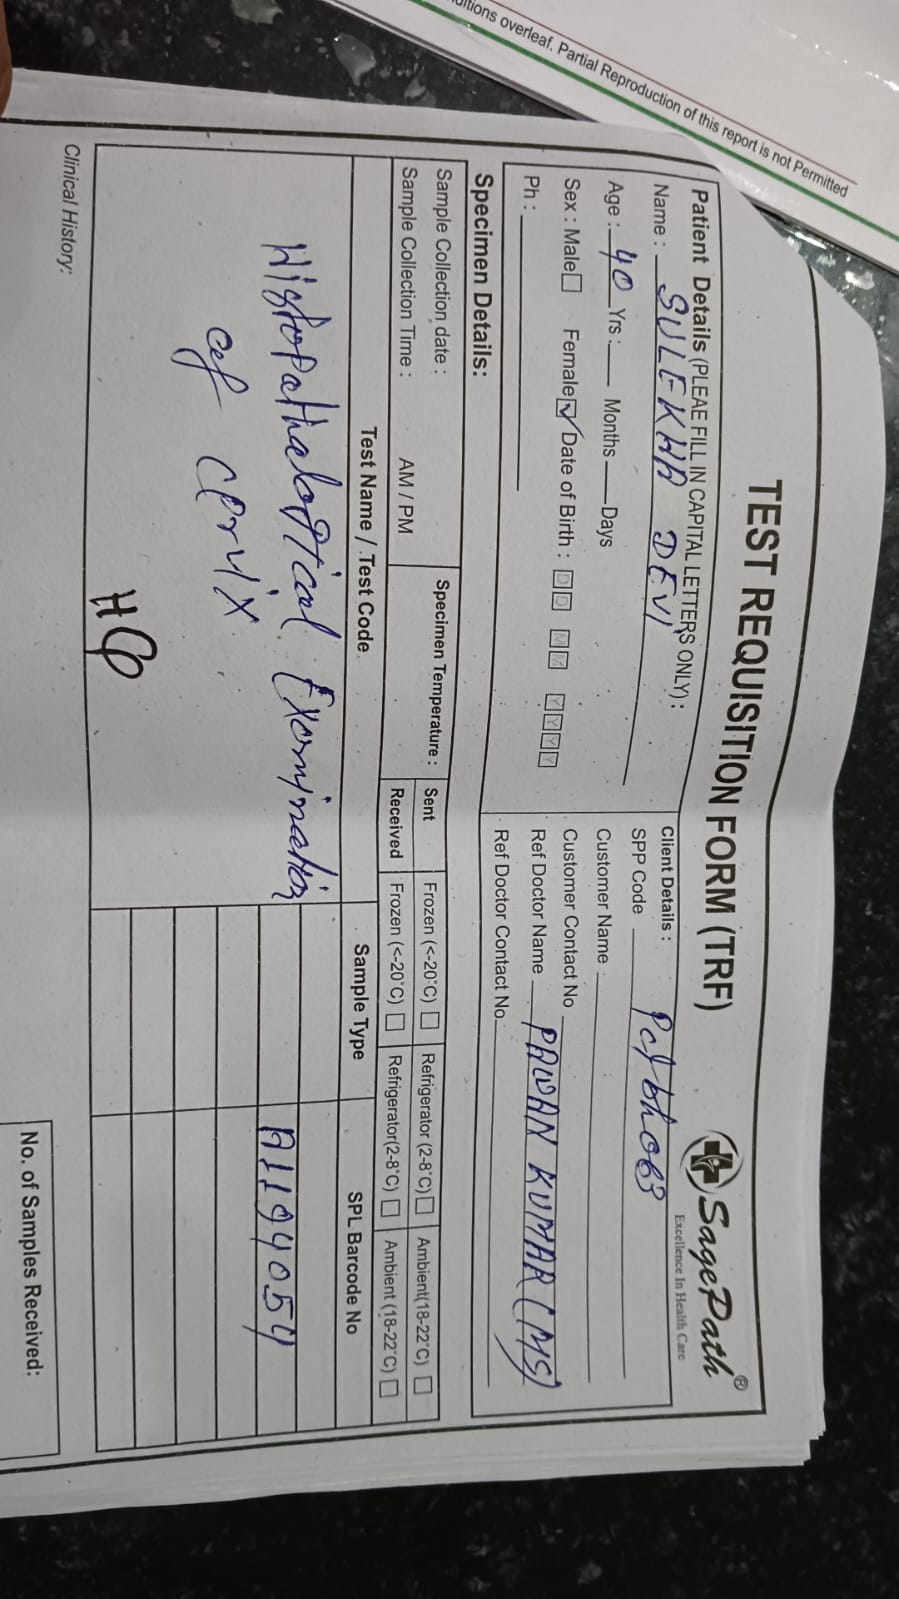 ditions overleaf. Partial Reproduction of this report is not Permitted
TEST REQUISITION FORM (TRF)
SagePath®
Excellence In Health Care
Patient Details (PLEAE FILL IN CAPITAL LETTERS ONLY) :
Name : SULEKHA DEVI
Age : 40 Yrs : Months Days
Sex : Male Female ✓ Date of Birth : DD MM YYYY
Ph :
Client Details :
SPP Code
Customer Name
Customer Contact No
Ref Doctor Name PAWAN KUMAR (MS)
Ref Doctor Contact No
Specimen Details:
Sample Collection date :
Sample Collection Time : AM / PM
Specimen Temperature :
Sent Frozen (<-20°C) Refrigerator (2-8°C) Ambient(18-22°C)
Received Frozen (<-20°C) Refrigerator(2-8°C) Ambient (18-22°C)
Test Name / Test Code Sample Type SPL Barcode No
Histopathological Examination A1194054
of Cervix
Clinical History:
No. of Samples Received: